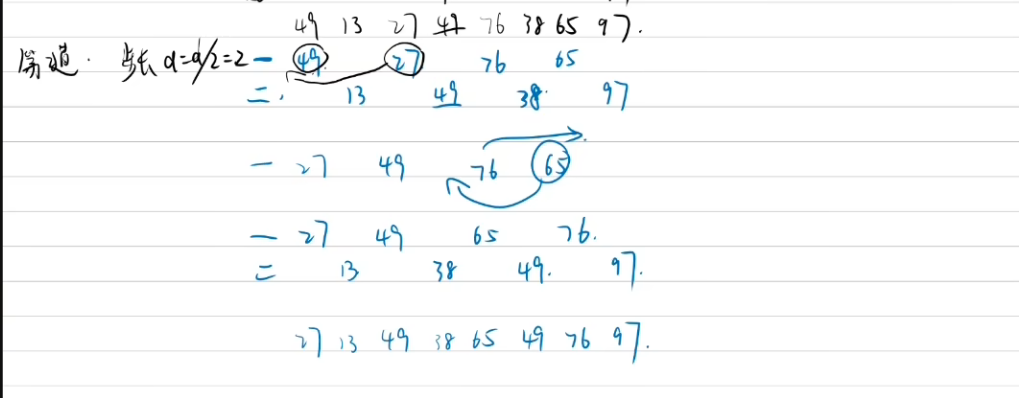 49 13 27 49 76 38 65 97.
第二趟. 步长 d=d/2=2 一 49 27 76 65
二. 13 49 38 97
一 27 49 76 65
一 27 49 65 76.
二 13 38 49. 97.
27 13 49 38 65 49 76 97.